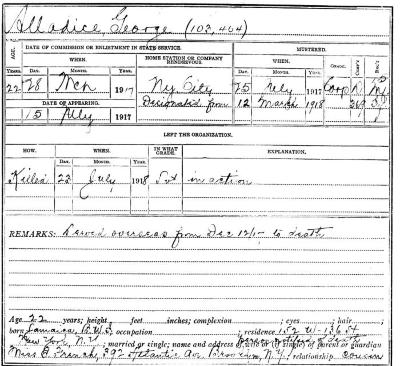 Alladice, George (103,464)
AGE. DATE OF COMMISSION OR ENLISTMENT IN STATE SERVICE. HOME STATION OR COMPANY RENDEZVOUS. MUSTERED. GRADE. COMP'Y REG'T
WHEN. WHEN.
YEARS. DAY. MONTH. DAY. MONTH.
22 28 Mch 1917 Ny City 25 July 1917 Corp D
DATE OF APPEARING. Designated from 12 March 1918 369
15 July 1917
LEFT THE ORGANIZATION.
HOW. WHEN. IN WHAT GRADE. EXPLANATION.
DAY. MONTH.
Killed 22 July 1918 Pvt in action
REMARKS: Served overseas from Dec 12/17 to death
Age 22 years; height feet inches; complexion ; eyes ; hair ;
born Jamaica, B.W.I.; occupation ; residence 152 W-136 St
New York, N.Y.; married or single; name and address of wife or (if single) of parent or guardian
person notified of death
Miss French, 392 Atlantic Av, Brooklyn, N.Y. relationship cousin